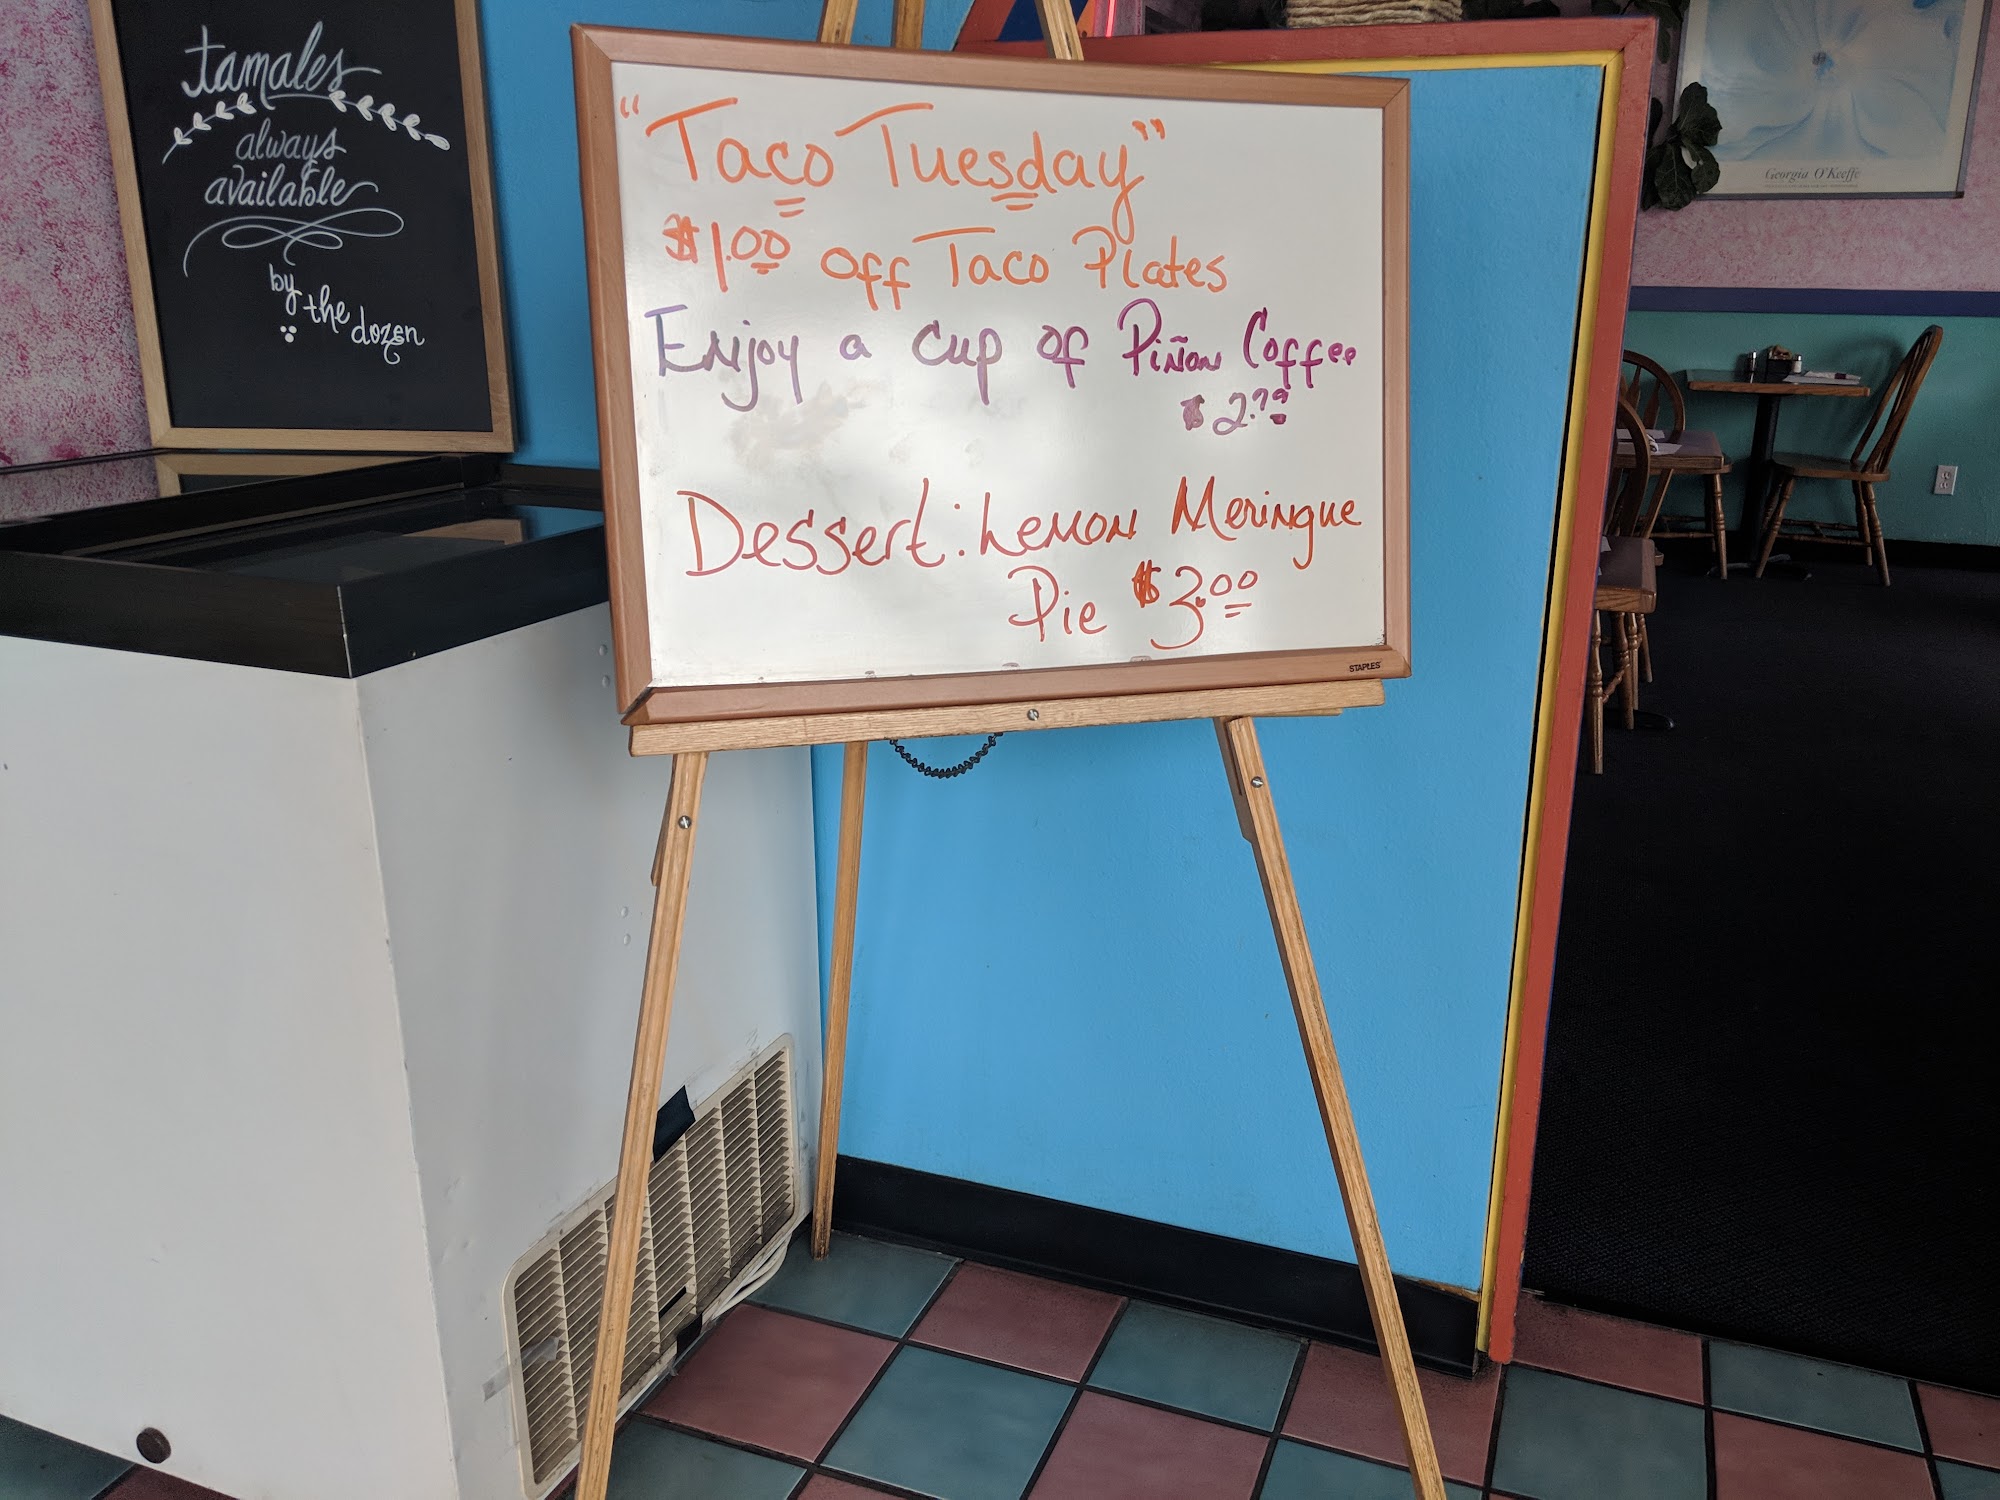 tamales
always
available
by
the dozen
"Taco Tuesday"
$1.00 off Taco Plates
Enjoy a cup of Piñon Coffee
$2.79
Dessert: Lemon Meringue
Pie $3.00
STAPLES
Georgia O'Keeffe